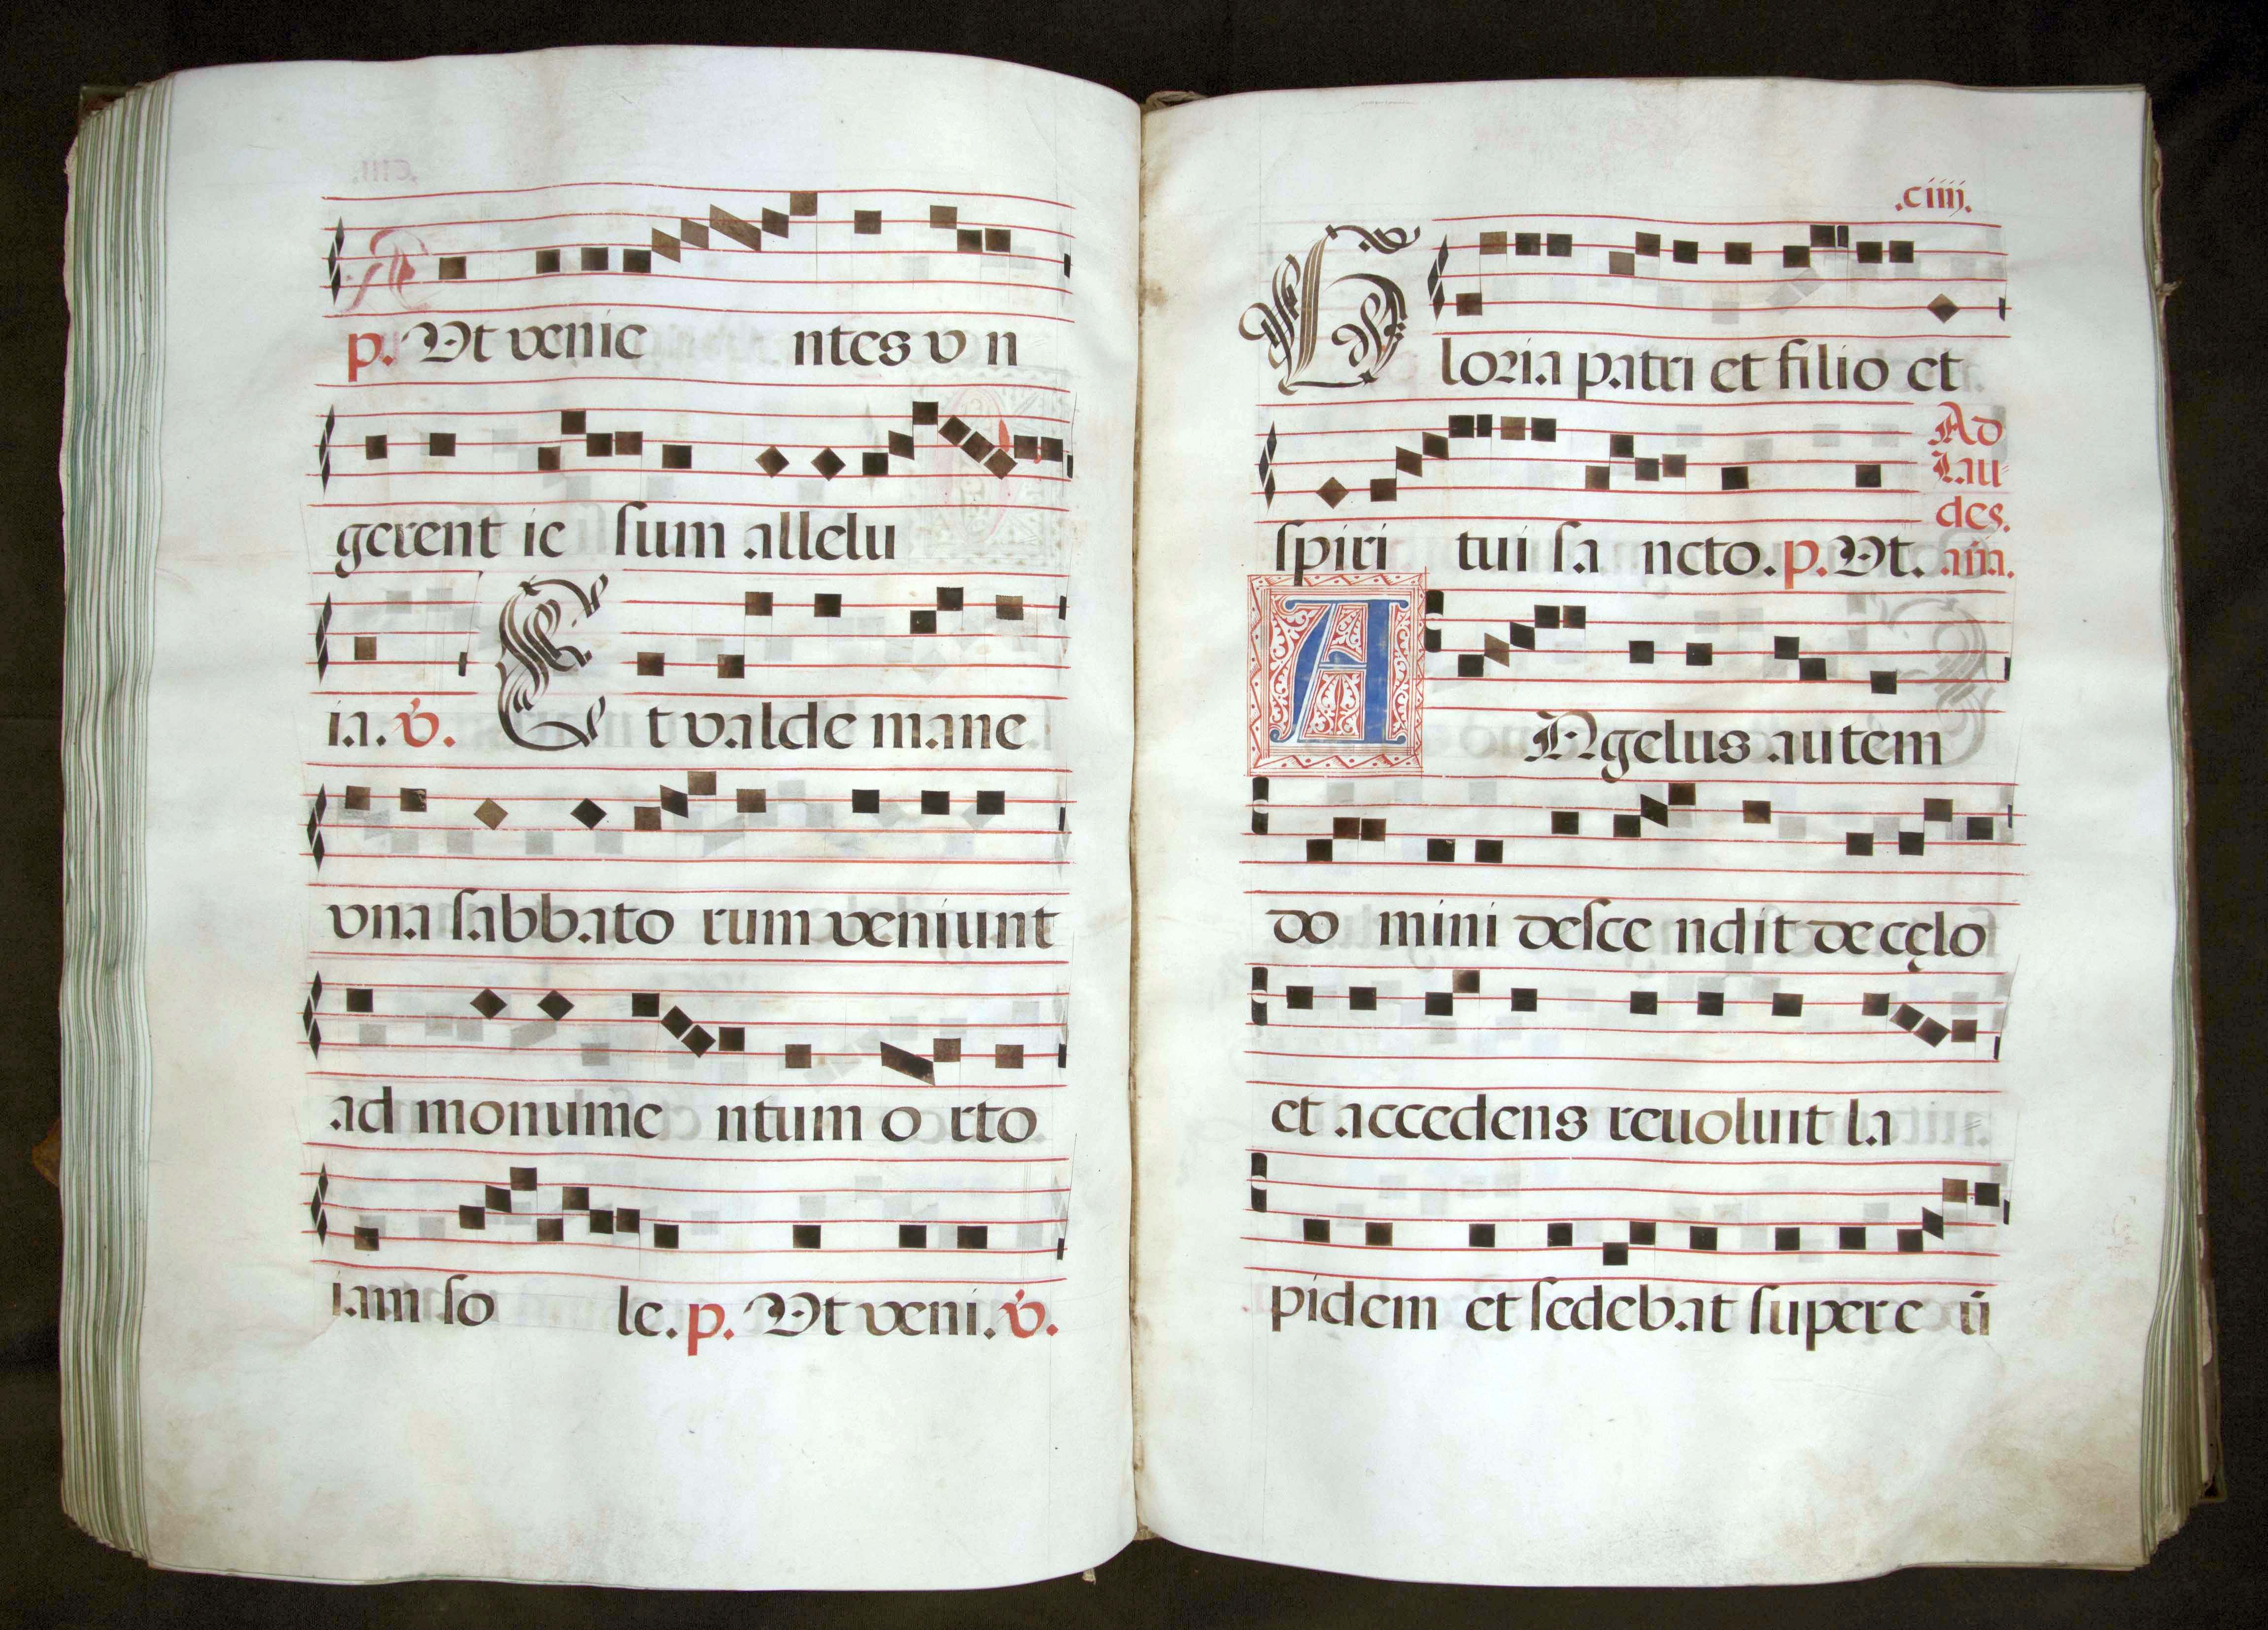 p. Ut venie ntes v n
gerent ie sum allelu
ia. v. E t valde mane
vna sabbato rum veniunt
ad monume ntum o rto
iam so le. p. Ut veni. v.
.ciiij.
G loria patri et filio et
Ad
lau=
des.
spiri tui sa ncto. p. Ut. añ.
A Ngelus autem
do mini desce ndit de cęlo
et accedens reuoluit la
pidem et sedebat super e ū